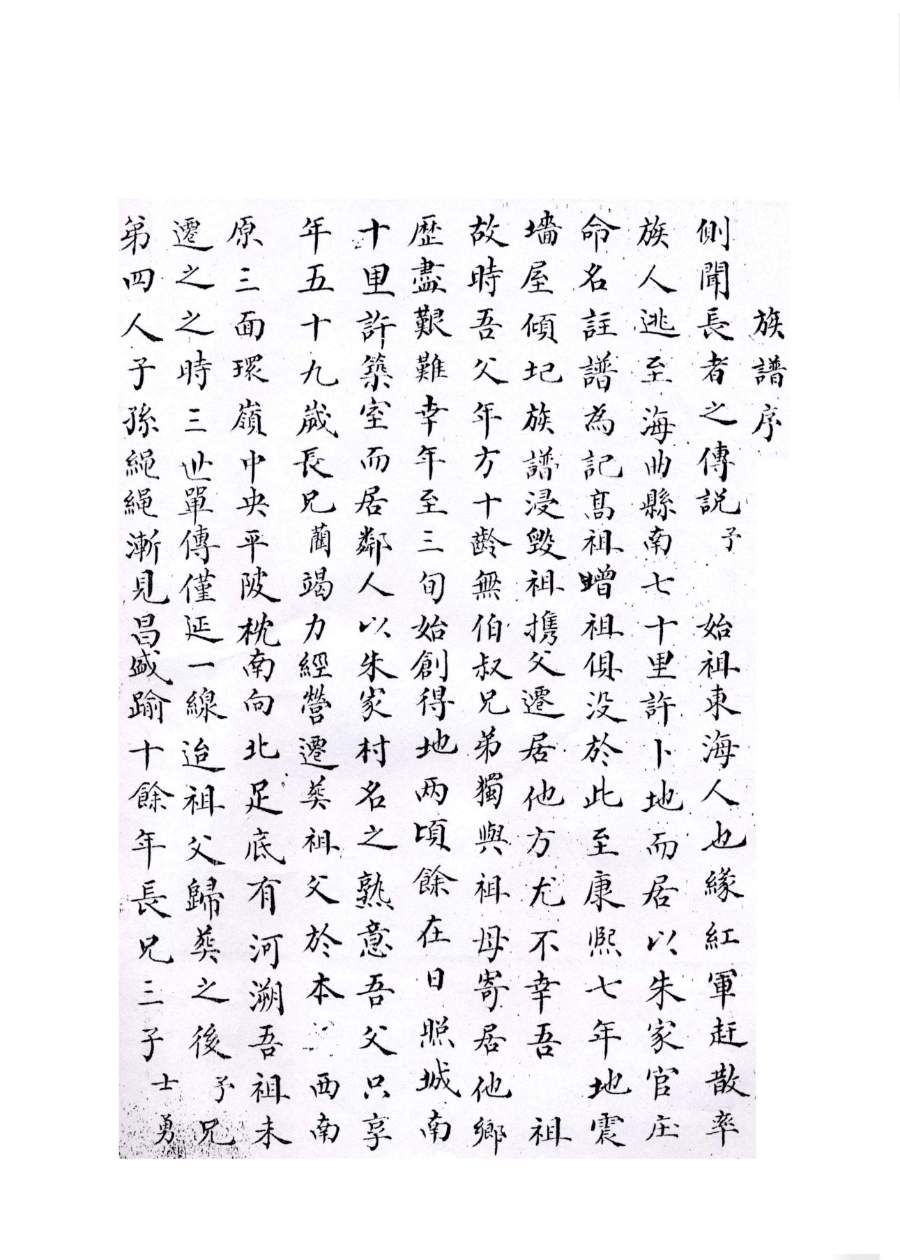 族譜序
側聞長者之傳説予始祖東海人也緣紅軍赶散率
族人逃至海曲縣南七十里許卜地而居以朱家官庄
命名註譜為記髙祖曾祖俱没於此至康熙七年地震
墻屋傾圮族譜浸毀祖携父遷居他方尤不幸吾祖
故時吾父年方十齡無伯叔兄弟獨與祖母寄居他鄉
歷盡艱難幸年至三旬始創得地两頃餘在日照城南
十里許築室而居鄰人以朱家村名之孰意吾父只享
年五十九歲長兄蘭竭力經營遷葬祖父於本西南
原三面環嶺中央平陂枕南向北足底有河溯吾祖未
遷之之時三世單傳僅延一線迨祖父歸葬之後予兄
第四人子孫繩繩漸見昌盛踰十餘年長兄三子士勇